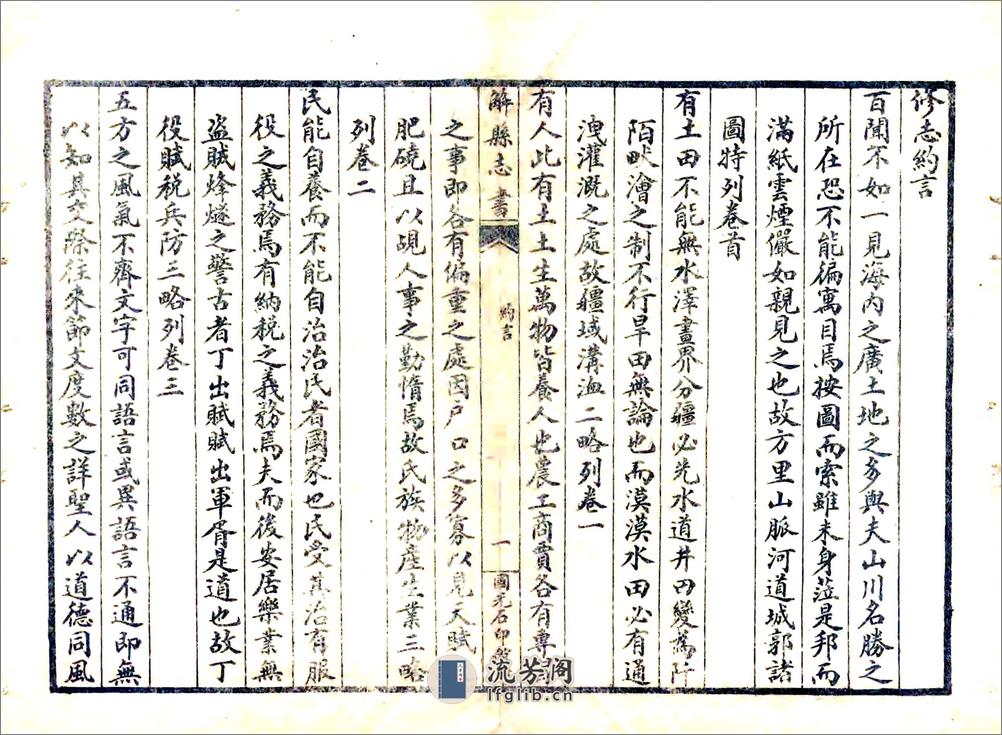 修志約言
百聞不如一見海內之廣土地之多與夫山川名勝之
所在恐不能徧寓目焉按圖而索雖未身蒞是邦而
滿紙雲煙儼如親見之也故方里山脈河道城郭諸
圖特列卷首
有土田不能無水澤畫界分疆必先水道井田變為阡
陌畎澮之制不行旱田無論也而漠漠水田必有通
洩灌溉之處故疆域溝洫二略列卷一
有人此有土土生萬物皆養人也農工商賈各有專
解縣志書
約言
一
國元石印
之事即各有偏重之處因戶口之多寡以見天賦
肥磽且以覘人事之勤惰焉故氏族物產生業三略
列卷二
民能自養而不能自治治民者國家也民受其治有服
役之義務焉有納稅之義務焉夫而後安居樂業無
盜賊烽燧之警古者丁出賦賦出軍胥是道也故丁
役賦稅兵防三略列卷三
五方之風氣不齊文字可同語言或異語言不通即無
以知其交際往來節文度數之詳聖人以道德同風
流芳阁
lfglib.cn